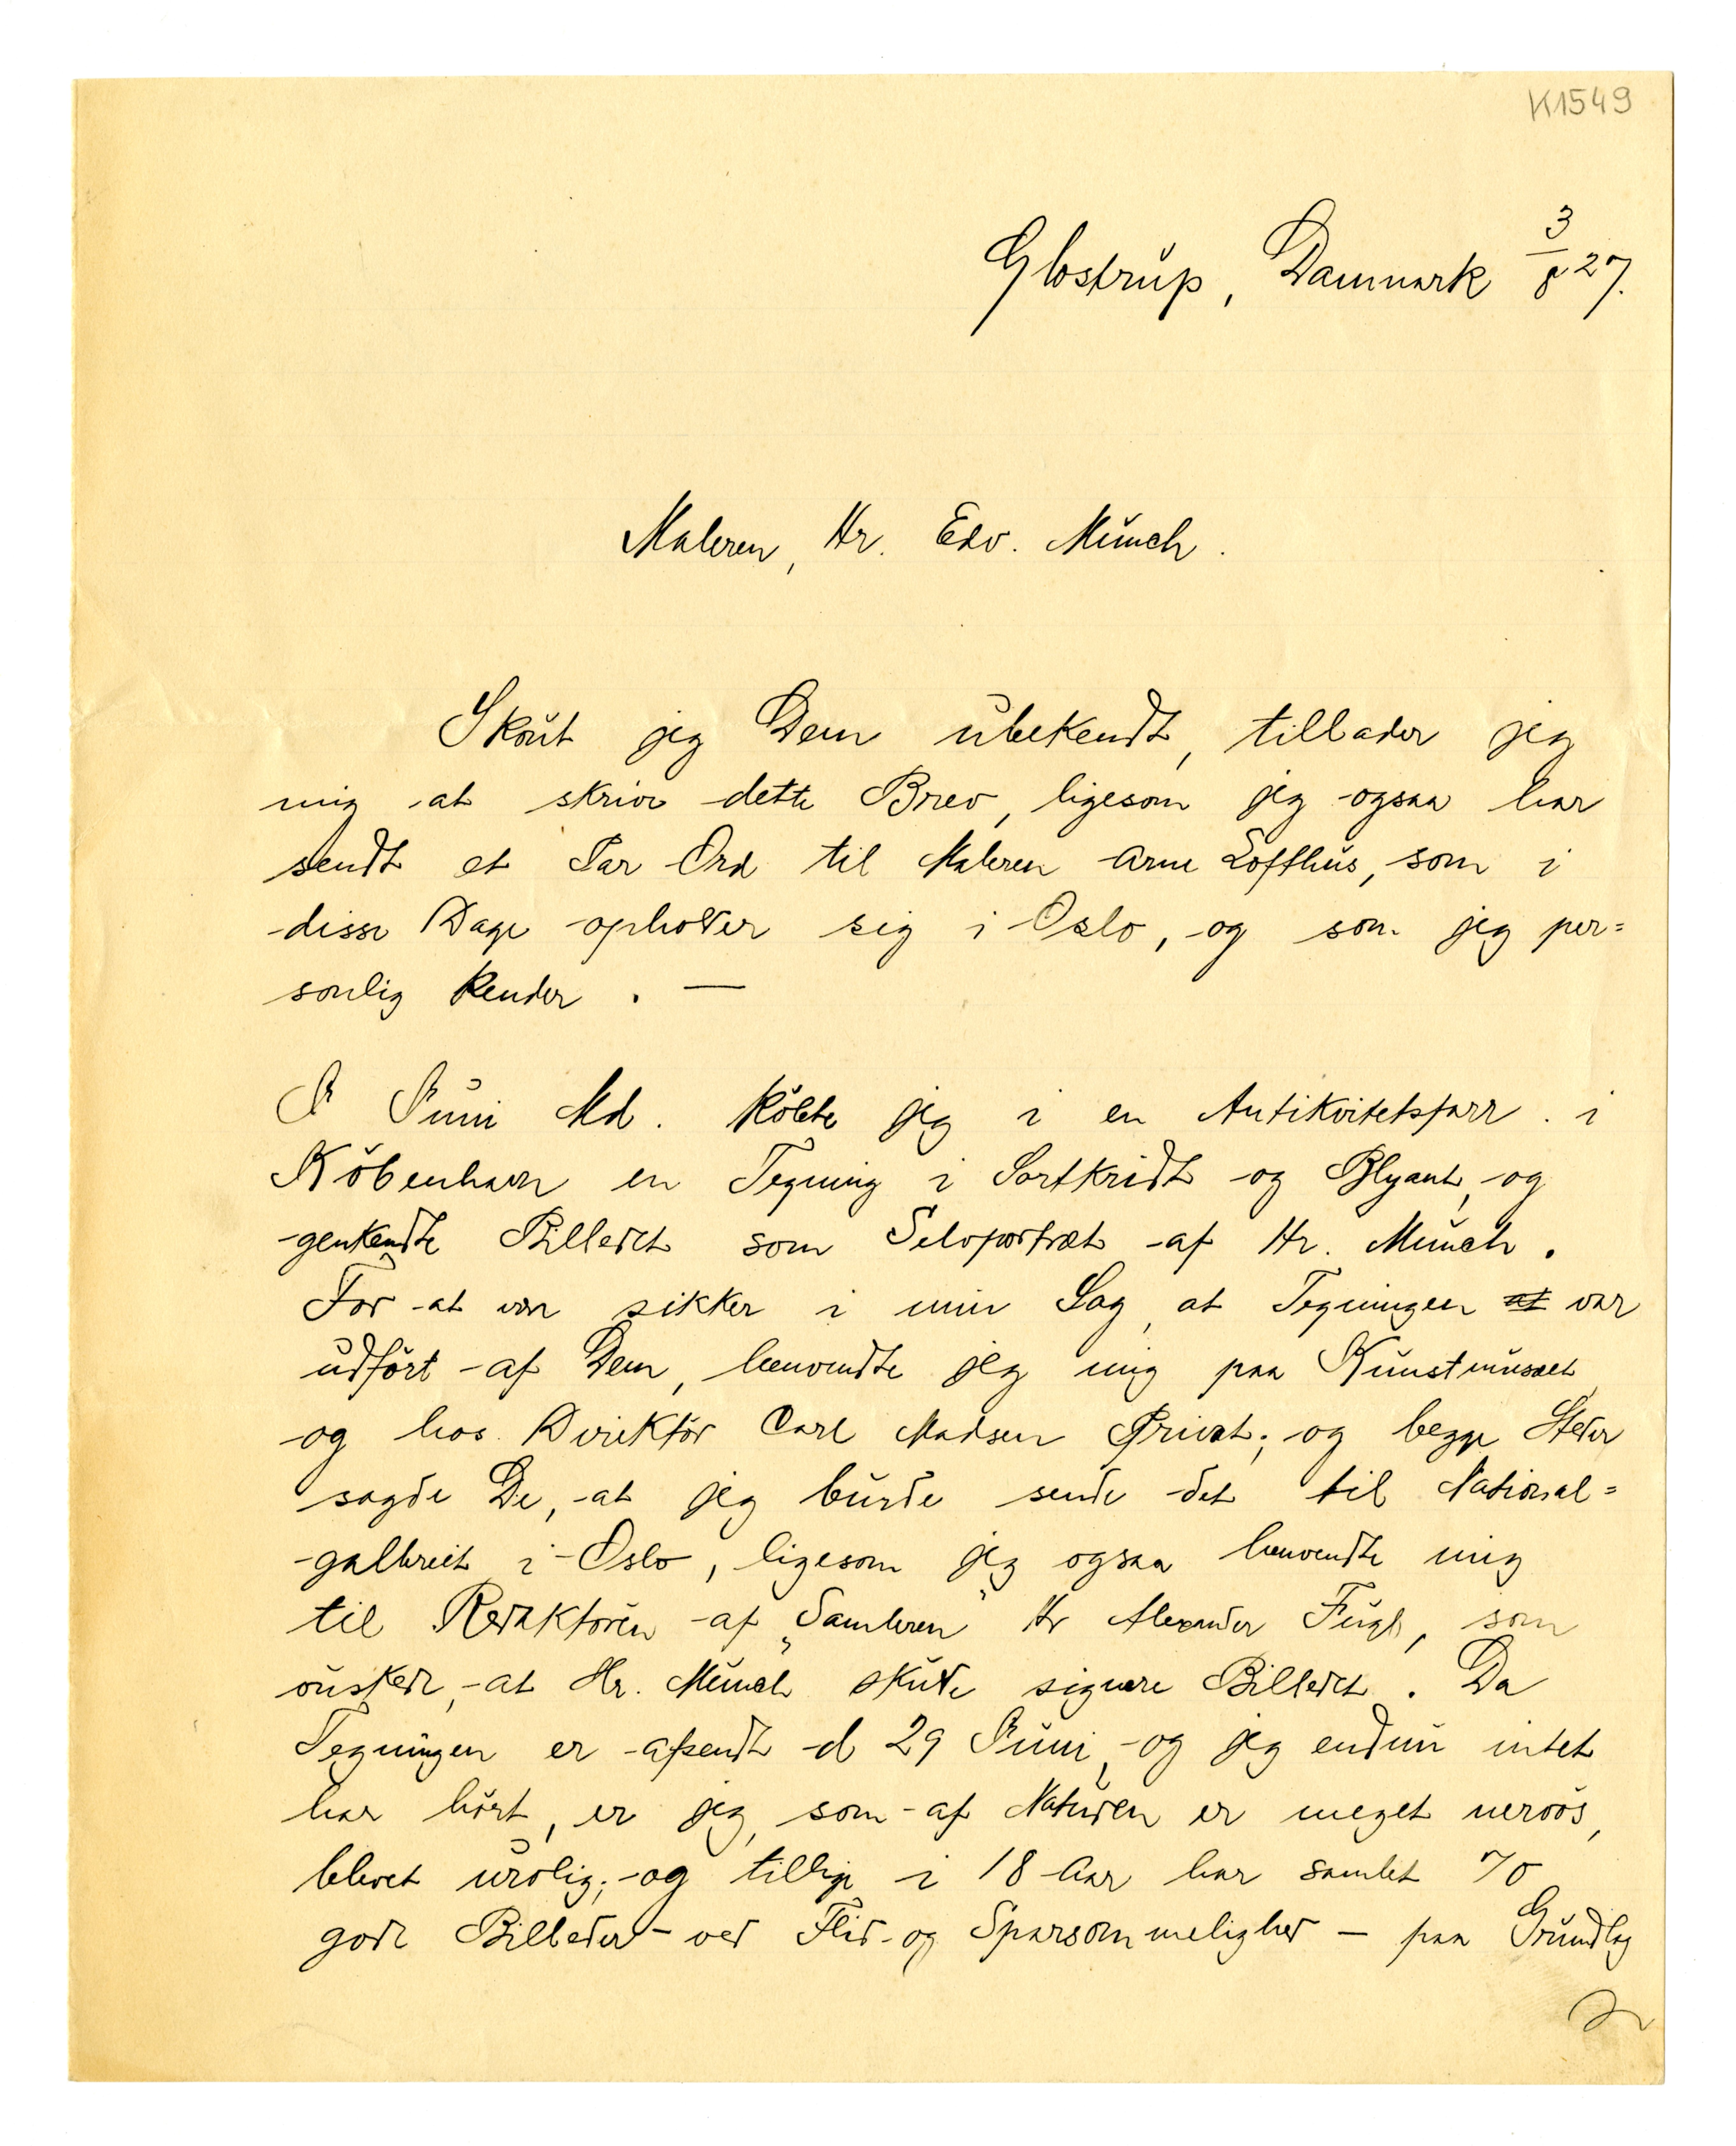 K1549
Glostrup, Danmark 3/8 27.
Maleren, Hr. Edv. Munch.
Skønt jeg Dem ubekendt, tillader jeg
mig at skrive dette Brev, ligesom jeg ogsaa har
sendt et Par Ord til Maleren Arne Lofthus, som i
disse Dage opholder sig i Oslo, og som jeg per=
sonlig kender. —
I Juni Md. købte jeg i en Antikvitetsforr. i
København en Tegning i Sortkridt og Blyant, og
genkendte Billedet som Selvportræt af Hr. Munch.
For at være sikker i min Sag, at Tegningen at var
udført af Dem, henvendte jeg mig paa Kunstmuseet
og hos Direktør Carl Madsen Privat; og begge Steder
sagde De, at jeg burde sende det til National=
galleriet i Oslo, ligesom jeg ogsaa henvendte mig
til Redaktøren af „Samleren" Hr Alexander Fugl, som
ønsker, at Hr. Munch skulde signere Billedet. Da
Tegningen er afsendt d 29 Juni, og jeg endnu intet
har hørt, er jeg, som af Naturen er meget nervøs,
blevet urolig; og tillige i 18 Aar har samlet 70
gode Billeder – ved Flid og Sparsommelighed – paa Grundlag